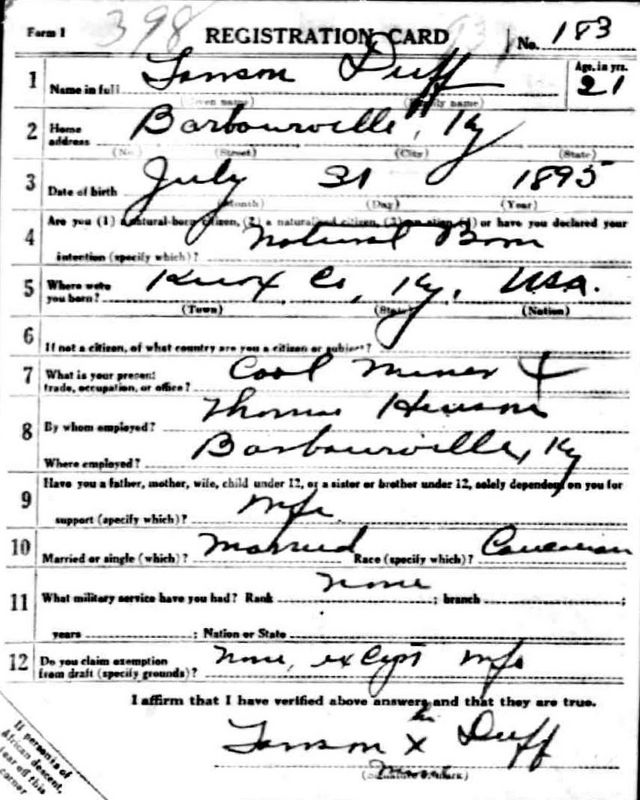 Form 1 398 REGISTRATION CARD No. 183
1 Name in full Lanson Duff Age, in yrs. 21
(Given name) (Family name)
2 Home address Barbourville, Ky
(No.) (Street) (City) (State)
3 Date of birth July 31 1895
(Month) (Day) (Year)
4 Are you (1) a natural-born citizen, (2) a naturalized citizen, (3) an alien, (4) or have you declared your
intention (specify which)? Natural Born
5 Where were you born? Knox Co, Ky, USA.
(Town) (State) (Nation)
6 If not a citizen, of what country are you a citizen or subject?
7 What is your present trade, occupation, or office? Coal Miner
8 By whom employed? Thomas
Where employed? Barbourville, Ky
9 Have you a father, mother, wife, child under 12, or a sister or brother under 12, solely dependent on you for
support (specify which)? Wife
10 Married or single (which)? Married Race (specify which)? Caucasian
11 What military service have you had? Rank None ; branch ;
years ; Nation or State
12 Do you claim exemption from draft (specify grounds)? None, except Wife
I affirm that I have verified above answers and that they are true.
his
Lanson X Duff
mark
(Signature or mark)
If person is of
African descent,
tear off this
corner